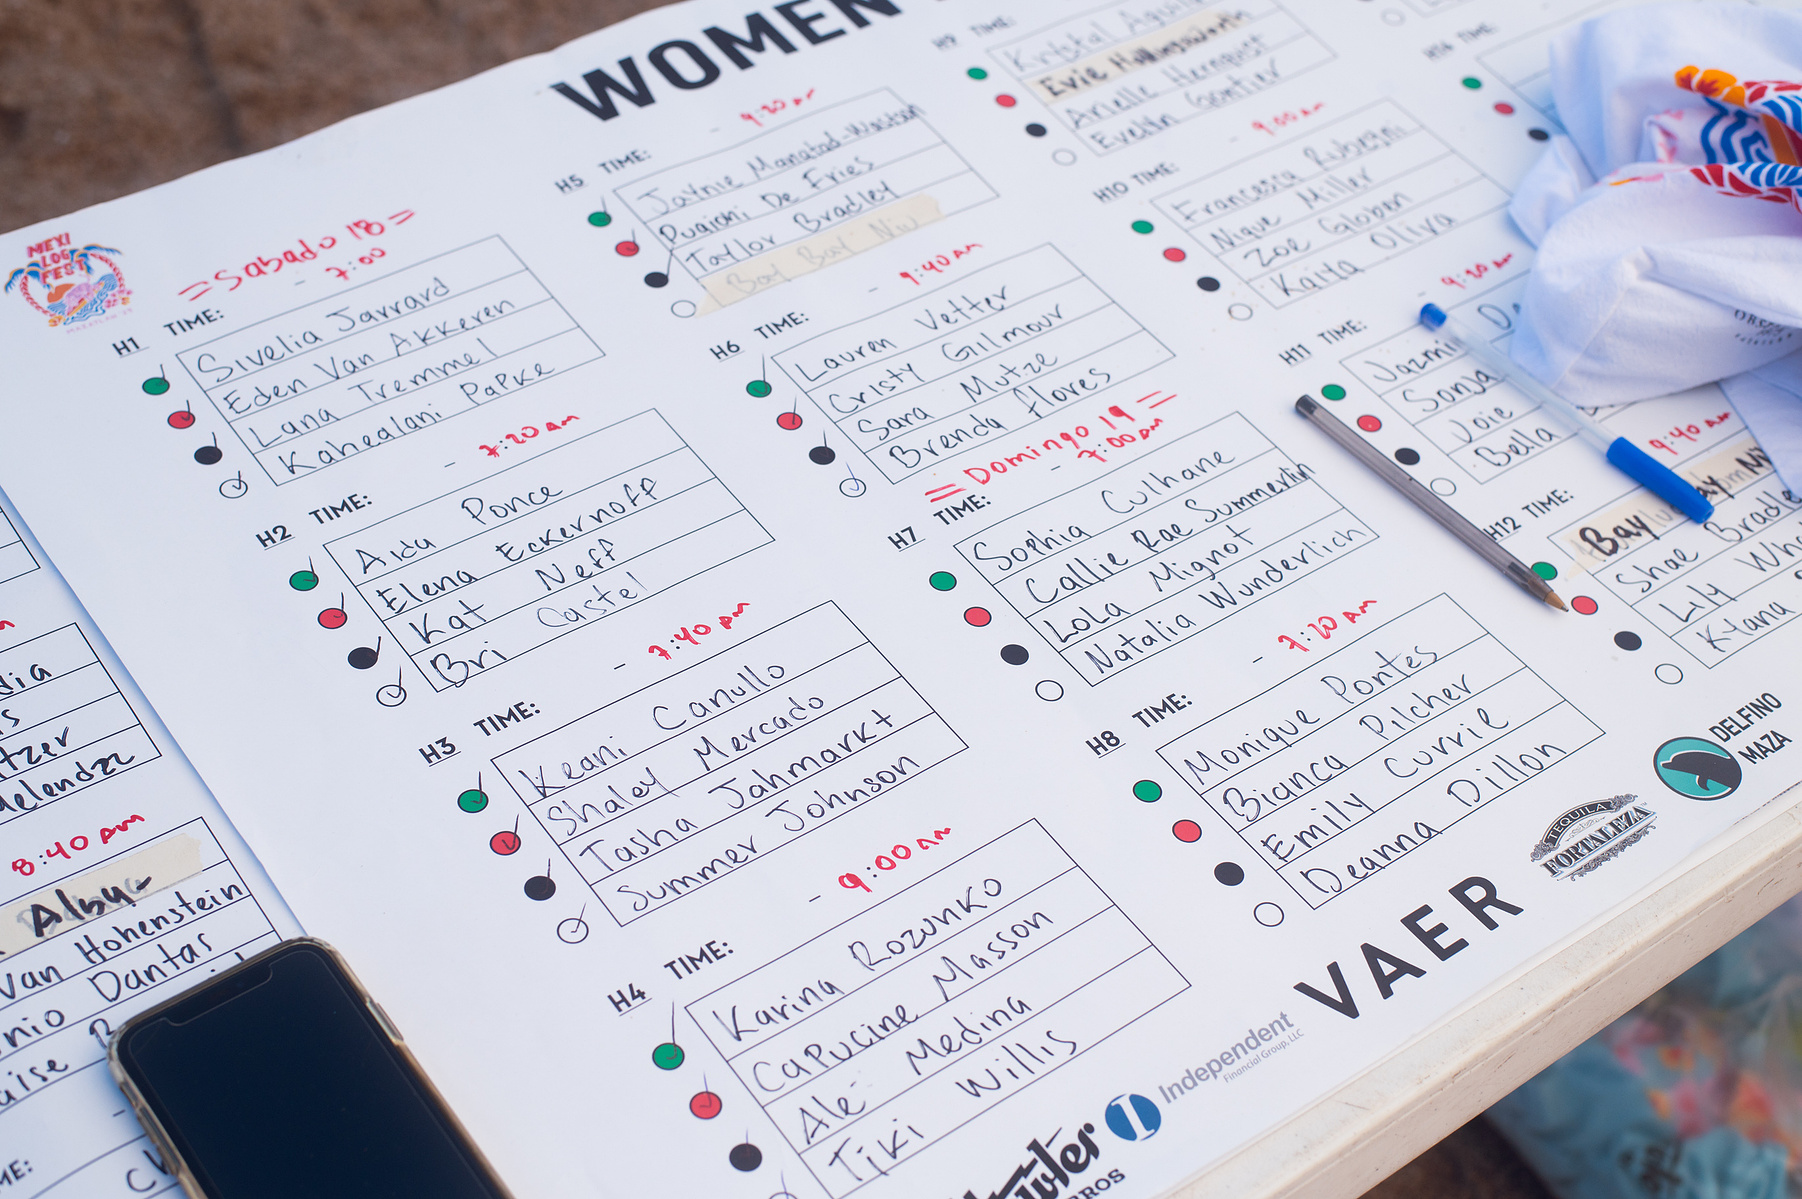 WOMEN
MEXI
LOG
FEST
MAZATLAN
= Sabado 18 =
- 7:00
H1 TIME:
Sivelia Jarrard
Eden Van Akkeren
Lana Tremmel
Kahealani Papke
- 7:20 am
H2 TIME:
Aida Ponce
Elena Eckernoff
Kat Neff
Bri Castel
- 7:40 pm
H3 TIME:
Keani Canullo
Shaley Mercado
Tasha Jahmarkt
Summer Johnson
- 9:00 am
H4 TIME:
Karina Rozunko
Capucine Masson
Alé Medina
Tiki Willis
- 9:20
H5 TIME:
Jaynie Manatad-Watson
Puaichi De Fries
Taylor Bradley
Bay Bay Niu
- 9:40 am
H6 TIME:
Lauren Vetter
Cristy Gilmour
Sara Mutze
Brenda Flores
= Domingo 19 =
- 7:00 am
H7 TIME:
Sophia Culhane
Callie Rae Summerlin
Lola Mignot
Natalia Wunderlich
- 7:20 am
H8 TIME:
Monique Pontes
Bianca Pilcher
Emily Currie
Deanna Dillon
H9 TIME:
Krystal Aguila
Evie
Arielle
Evelyn Gontier
- 9:00 am
H10 TIME:
Francesca
Nique Miller
Zoe
Kaita Oliva
- 9:20 am
H11 TIME:
Jazmi
Sonja
Joie
Bella
9:40 am
H12 TIME:
Bay
Shae Bradle
Lily
Kiana
TIME:
dia
tzer
8:40 pm
Alby
van Hohenstein
nio Dantas
aise
ME:
DELFINO
MAZA
TEQUILA
FORTALEZA
VAER
Independent
Financial Group, LLC
BROS